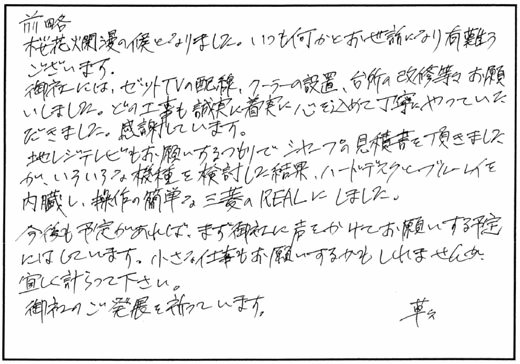 前略
桜花爛漫の候となりました。いつも何かとお世話になり有難う
ございます。
御社には、ゼットTVの配線、クーラーの設置、台所の改修等々お願
いしました。どの工事も誠実に着実に心を込めて丁寧にやっていた
だきました。感謝しています。
地レジテレビもお願いするつもりでシャープの見積書を頂きました
が、いろいろな機種を検討した結果、ハードディスクとブルーレイを
内臓し、操作の簡単な三菱のREALにしました。
今後も予定があれば、まず御社に声をかけてお願いする予定
にはしています。小さな仕事もお願いするかもしれませんが
宜しく計らって下さい。
御社のご発展を祈っています。
草々